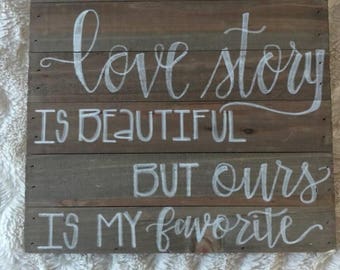 love story
IS BEAUTIFUL
BUT ours
IS MY favorite